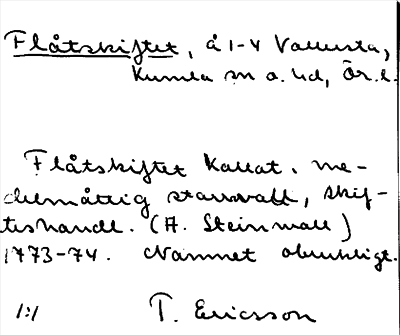 Flåtskiftet, å 1-4 Vallersta,
Kumla sn o. hd, Ör. l.
Flåtskiftet kallat. me-
delmåttig starrvall, skif-
teshandl. (A. Steinwall)
1773-74. Namnet obrukligt.
1:1 T. Ericsson